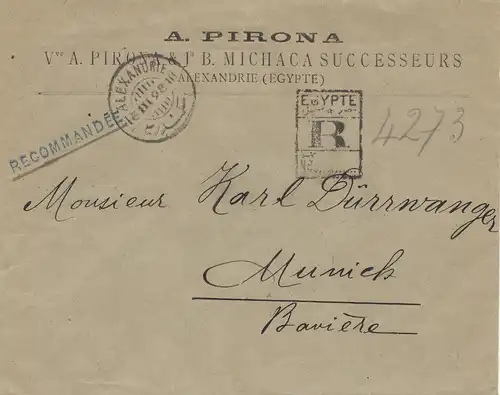 A. PIRONA
Vve A. PIRONA & Jn B. MICHACA SUCCESSEURS
ALEXANDRIE (EGYPTE)
ALEXANDRIE
RECOMMANDÉE
EGYPTE
R
4273
Monsieur Karl Dürrwanger
Munich
Bavière